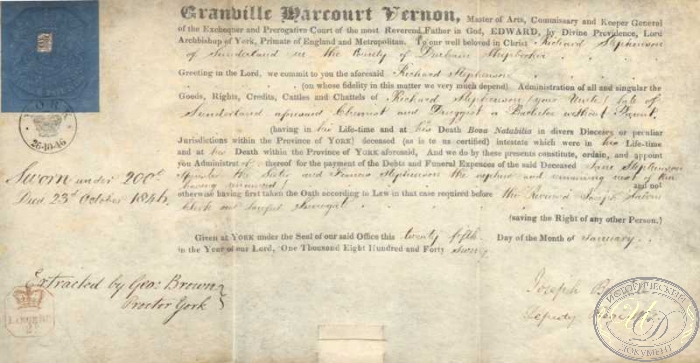 Granville Harcourt Vernon, Master of Arts, Commissary and Keeper General
of the Exchequer and Prerogative Court of the most Reverend Father in God, EDWARD, by Divine Providence, Lord
Archbishop of York, Primate of England and Metropolitan. To our well beloved in Christ Richard Stephenson
of Sunderland in the County of Durham
Greeting in the Lord, we commit to you the aforesaid Richard Stephenson
(on whose fidelity in this matter we very much depend) Administration of all and singular the
Goods, Rights, Credits, Cattles and Chattels of Richard Stephenson (your Uncle) late of
Sunderland aforesaid Chemist and Druggist a Bachelor without Parent
(having in his Life-time and at his Death Bona Notabilia in divers Dioceses or peculiar
Jurisdictions within the Province of YORK) deceased (as is to us certified) intestate which were in his Life-time
and at his Death within the Province of YORK aforesaid, And we do by these presents constitute, ordain, and appoint
you Administrator thereof for the payment of the Debts and Funeral Expences of the said Deceased Jane Stephenson
Spinster the Sister and Frances Stephenson the
having renounced and not
otherwise having first taken the Oath according to Law in that case required before the Reverend Joseph
Clerk our lawful Surrogate
(saving the Right of any other Person.)
Given at YORK under the Seal of our said Office this twenty fifth Day of the Month of January
in the Year of our Lord, One Thousand Eight Hundred and Forty seven
Sworn under 200£
Died 23rd October 1846
26·10·46
Extracted by Geo: Brown
Proctor York
Joseph
Deputy
ИСТОРИЧЕСКИЙ
ДОКУМЕНТ